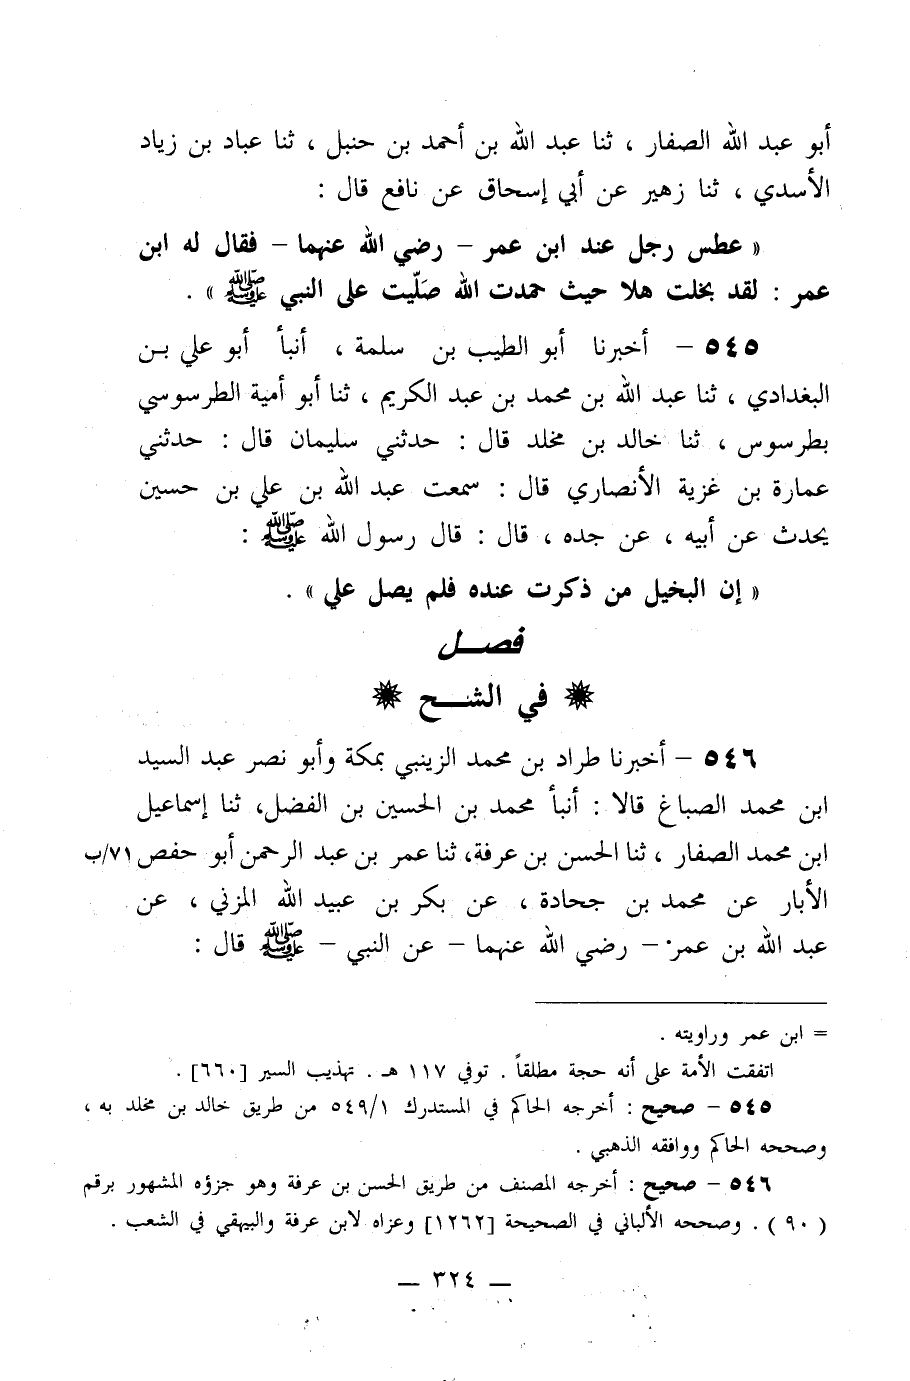 أبو عبد الله الصفار ، ثنا عبد الله بن أحمد بن حنبل ، ثنا عباد بن زياد
الأسدي ، ثنا زهير عن أبي إسحاق عن نافع قال :
« عطس رجل عند ابن عمر – رضي الله عنهما – فقال له ابن
عمر : لقد بخلت هلا حيث حمدت الله صَلّيت على النبي ﷺ » .
٥٤٥ – أخبرنا أبو الطيب بن سلمة ، أنبأ أبو علي بن
البغدادي ، ثنا عبد الله بن محمد بن عبد الكريم ، ثنا أبو أمية الطرسوسي
بطرسوس ، ثنا خالد بن مخلد قال : حدثني سليمان قال : حدثني
عمارة بن غزية الأنصاري قال : سمعت عبد الله بن علي بن حسين
يحدث عن أبيه ، عن جده ، قال : قال رسول الله ﷺ :
« إن البخيل من ذكرت عنده فلم يصل علي » .
فصـــل
❋ في الشـــح ❋
٥٤٦ – أخبرنا طراد بن محمد الزينبي بمكة وأبو نصر عبد السيد
ابن محمد الصباغ قالا : أنبأ محمد بن الحسين بن الفضل، ثنا إسماعيل
ابن محمد الصفار ، ثنا الحسن بن عرفة، ثنا عمر بن عبد الرحمن أبو حفص ٧١/ب
الأبار عن محمد بن جحادة ، عن بكر بن عبيد الله المزني ، عن
عبد الله بن عمر – رضي الله عنهما – عن النبي – ﷺ قال :
= ابن عمر وراويته .
اتفقت الأمة على أنه حجة مطلقاً . توفي ١١٧ هـ . تهذيب السير [٦٦٠] .
٥٤٥ – صحيح : أخرجه الحاكم في المستدرك ٥٤٩/١ من طريق خالد بن مخلد به ،
وصححه الحاكم ووافقه الذهبي .
٥٤٦ – صحيح : أخرجه المصنف من طريق الحسن بن عرفة وهو جزؤه المشهور برقم
( ٩٠ ) . وصححه الألباني في الصحيحة [١٢٦٢] وعزاه لابن عرفة والبيهقي في الشعب .
– ٣٢٤ –